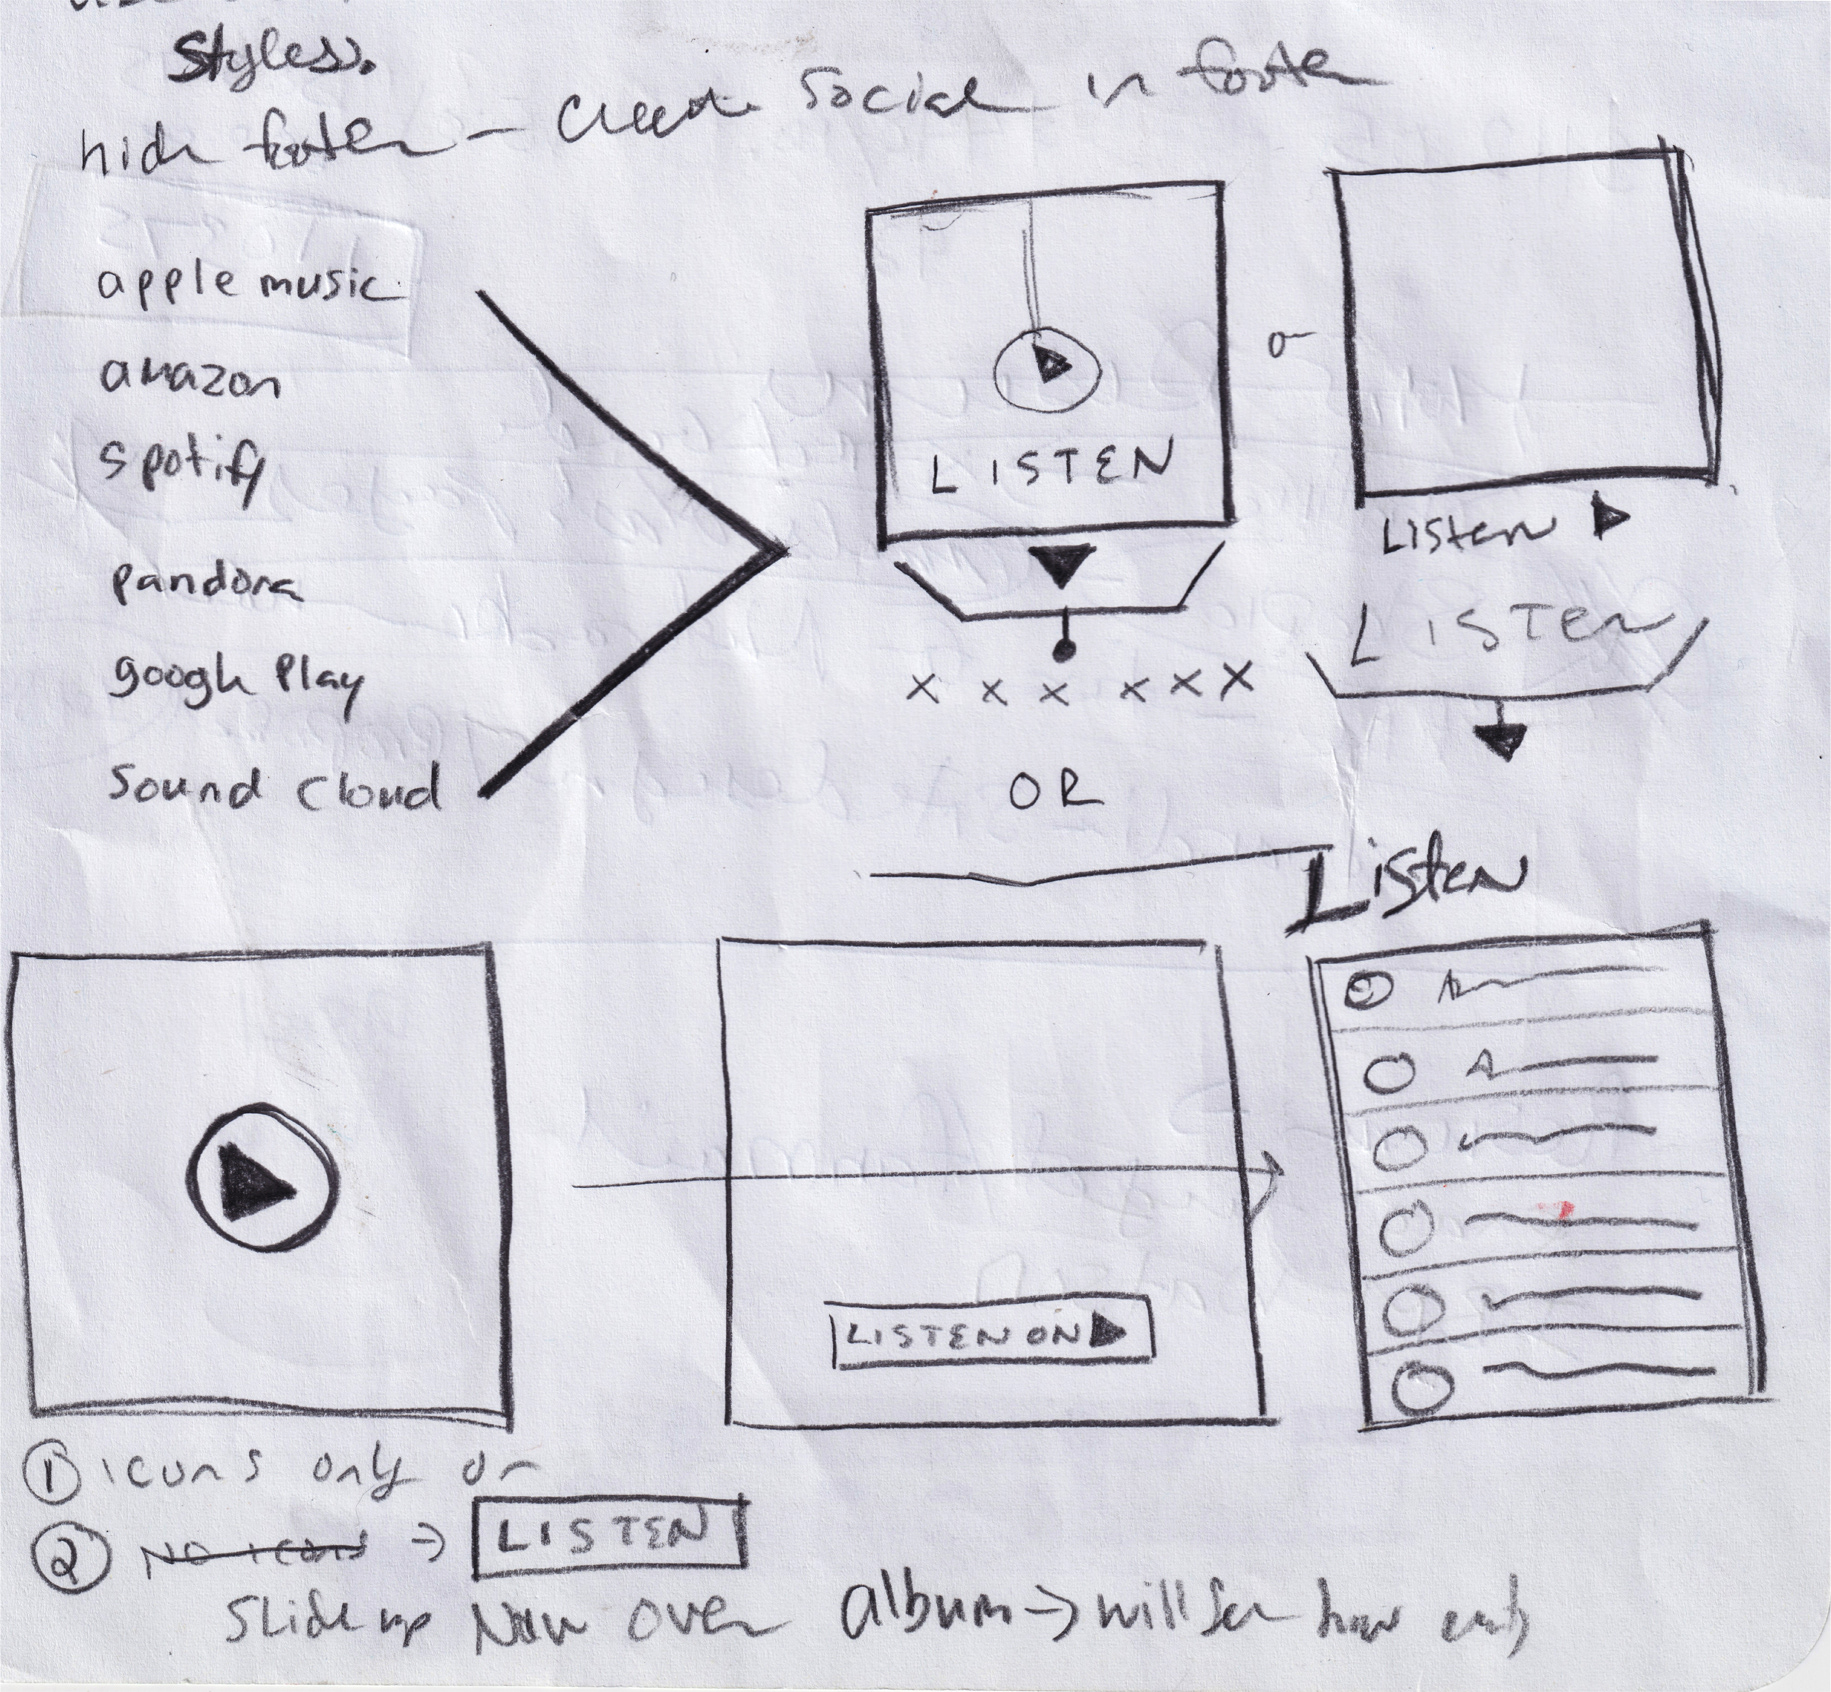 Styles.
hide footer – create social in footer
apple music
amazon
spotify
pandora
google Play
Sound Cloud
LISTEN
or
Listen
LISTEN
x x x x x x
OR
Listen
LISTEN ON
① icons only or
② No icons → LISTEN
Slide up Nav over album → will see how